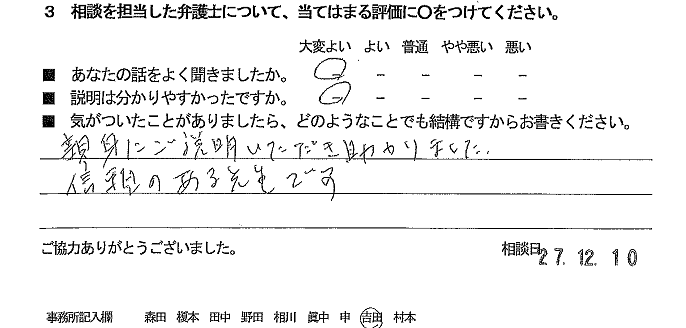 3 相談を担当した弁護士について、当てはまる評価に〇をつけてください。
大変よい よい 普通 やや悪い 悪い
■ あなたの話をよく聞きましたか。 － － － －
■ 説明は分かりやすかったですか。 － － － －
■ 気がついたことがありましたら、どのようなことでも結構ですからお書きください。
親身にご説明いただき助かりました。
信頼のある先生です
ご協力ありがとうございました。 相談日 27.12.10
事務所記入欄 森田 榎本 田中 野田 相川 眞中 申 吉田 村本